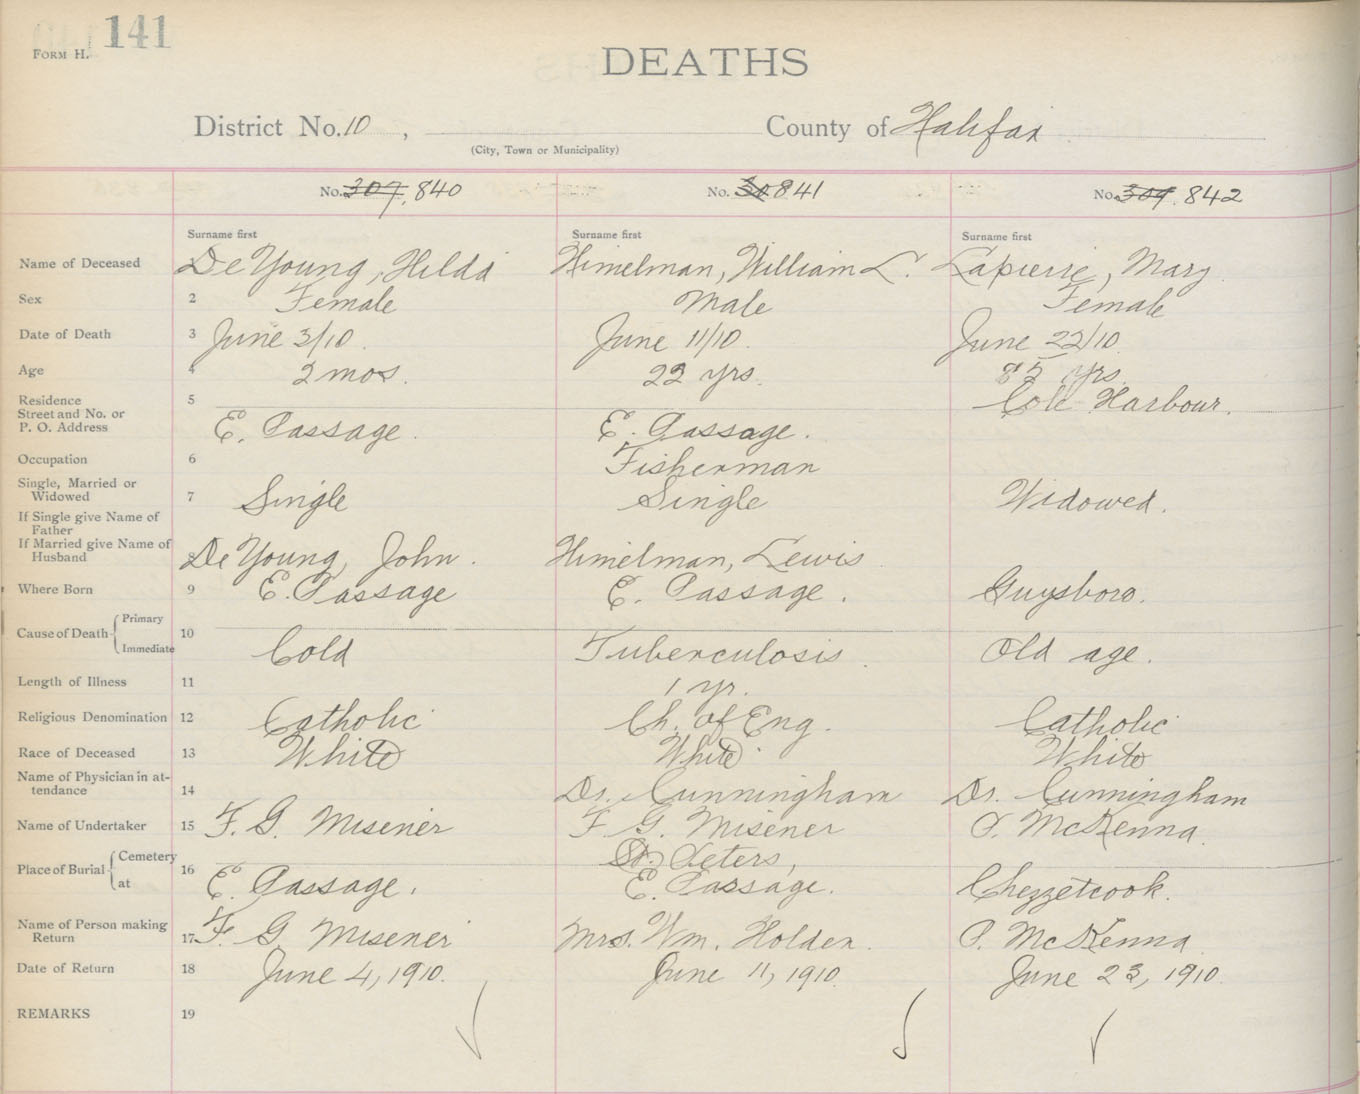 141
FORM H.
DEATHS
District No. 10, County of Halifax
(City, Town or Municipality)
No. 307, 840 No. 30 841 No. 309. 842
Surname first Surname first Surname first
Name of Deceased 1 De Young, Hilda Himelman, William L. Lapierre, Mary
Sex 2 Female Male Female
Date of Death 3 June 3/10. June 11/10. June 22/10.
Age 4 2 mos. 22 yrs. 85 yrs.
Residence 5 Cole Harbour.
Street and No. or
P. O. Address E. Passage. E. Passage.
Occupation 6 Fisherman
Single, Married or
Widowed 7 Single Single Widowed.
If Single give Name of
Father
If Married give Name of
Husband 8 De Young, John. Himelman, Lewis
Where Born 9 E. Passage E. Passage. Guysboro.
Cause of Death Primary 10
Immediate Cold Tuberculosis. Old age.
Length of Illness 11 1 yr.
Religious Denomination 12 Catholic Ch. of Eng. Catholic
Race of Deceased 13 White White. White
Name of Physician in at-
tendance 14 Dr. Cunningham Dr. Cunningham
Name of Undertaker 15 F. G. Misener F. G. Misener P. McKenna.
Place of Burial Cemetery 16 St. Peters,
at E. Passage. E. Passage. Chezzetcook.
Name of Person making
Return 17 F. G. Misener Mrs. Wm. Holden. P. McKenna.
Date of Return 18 June 4, 1910. June 11, 1910. June 23, 1910.
REMARKS 19